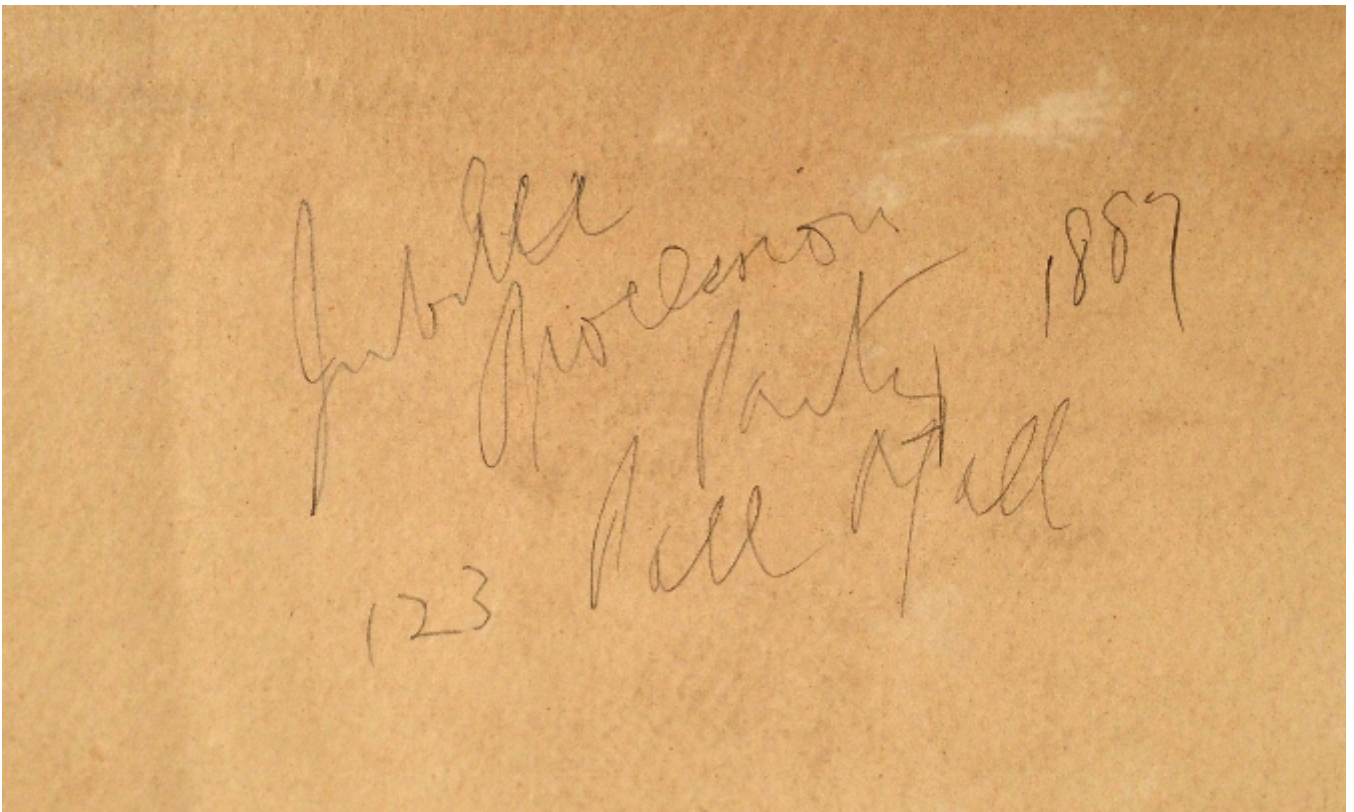 Jubilee
Procession
Party 1887
Pall Mall
123